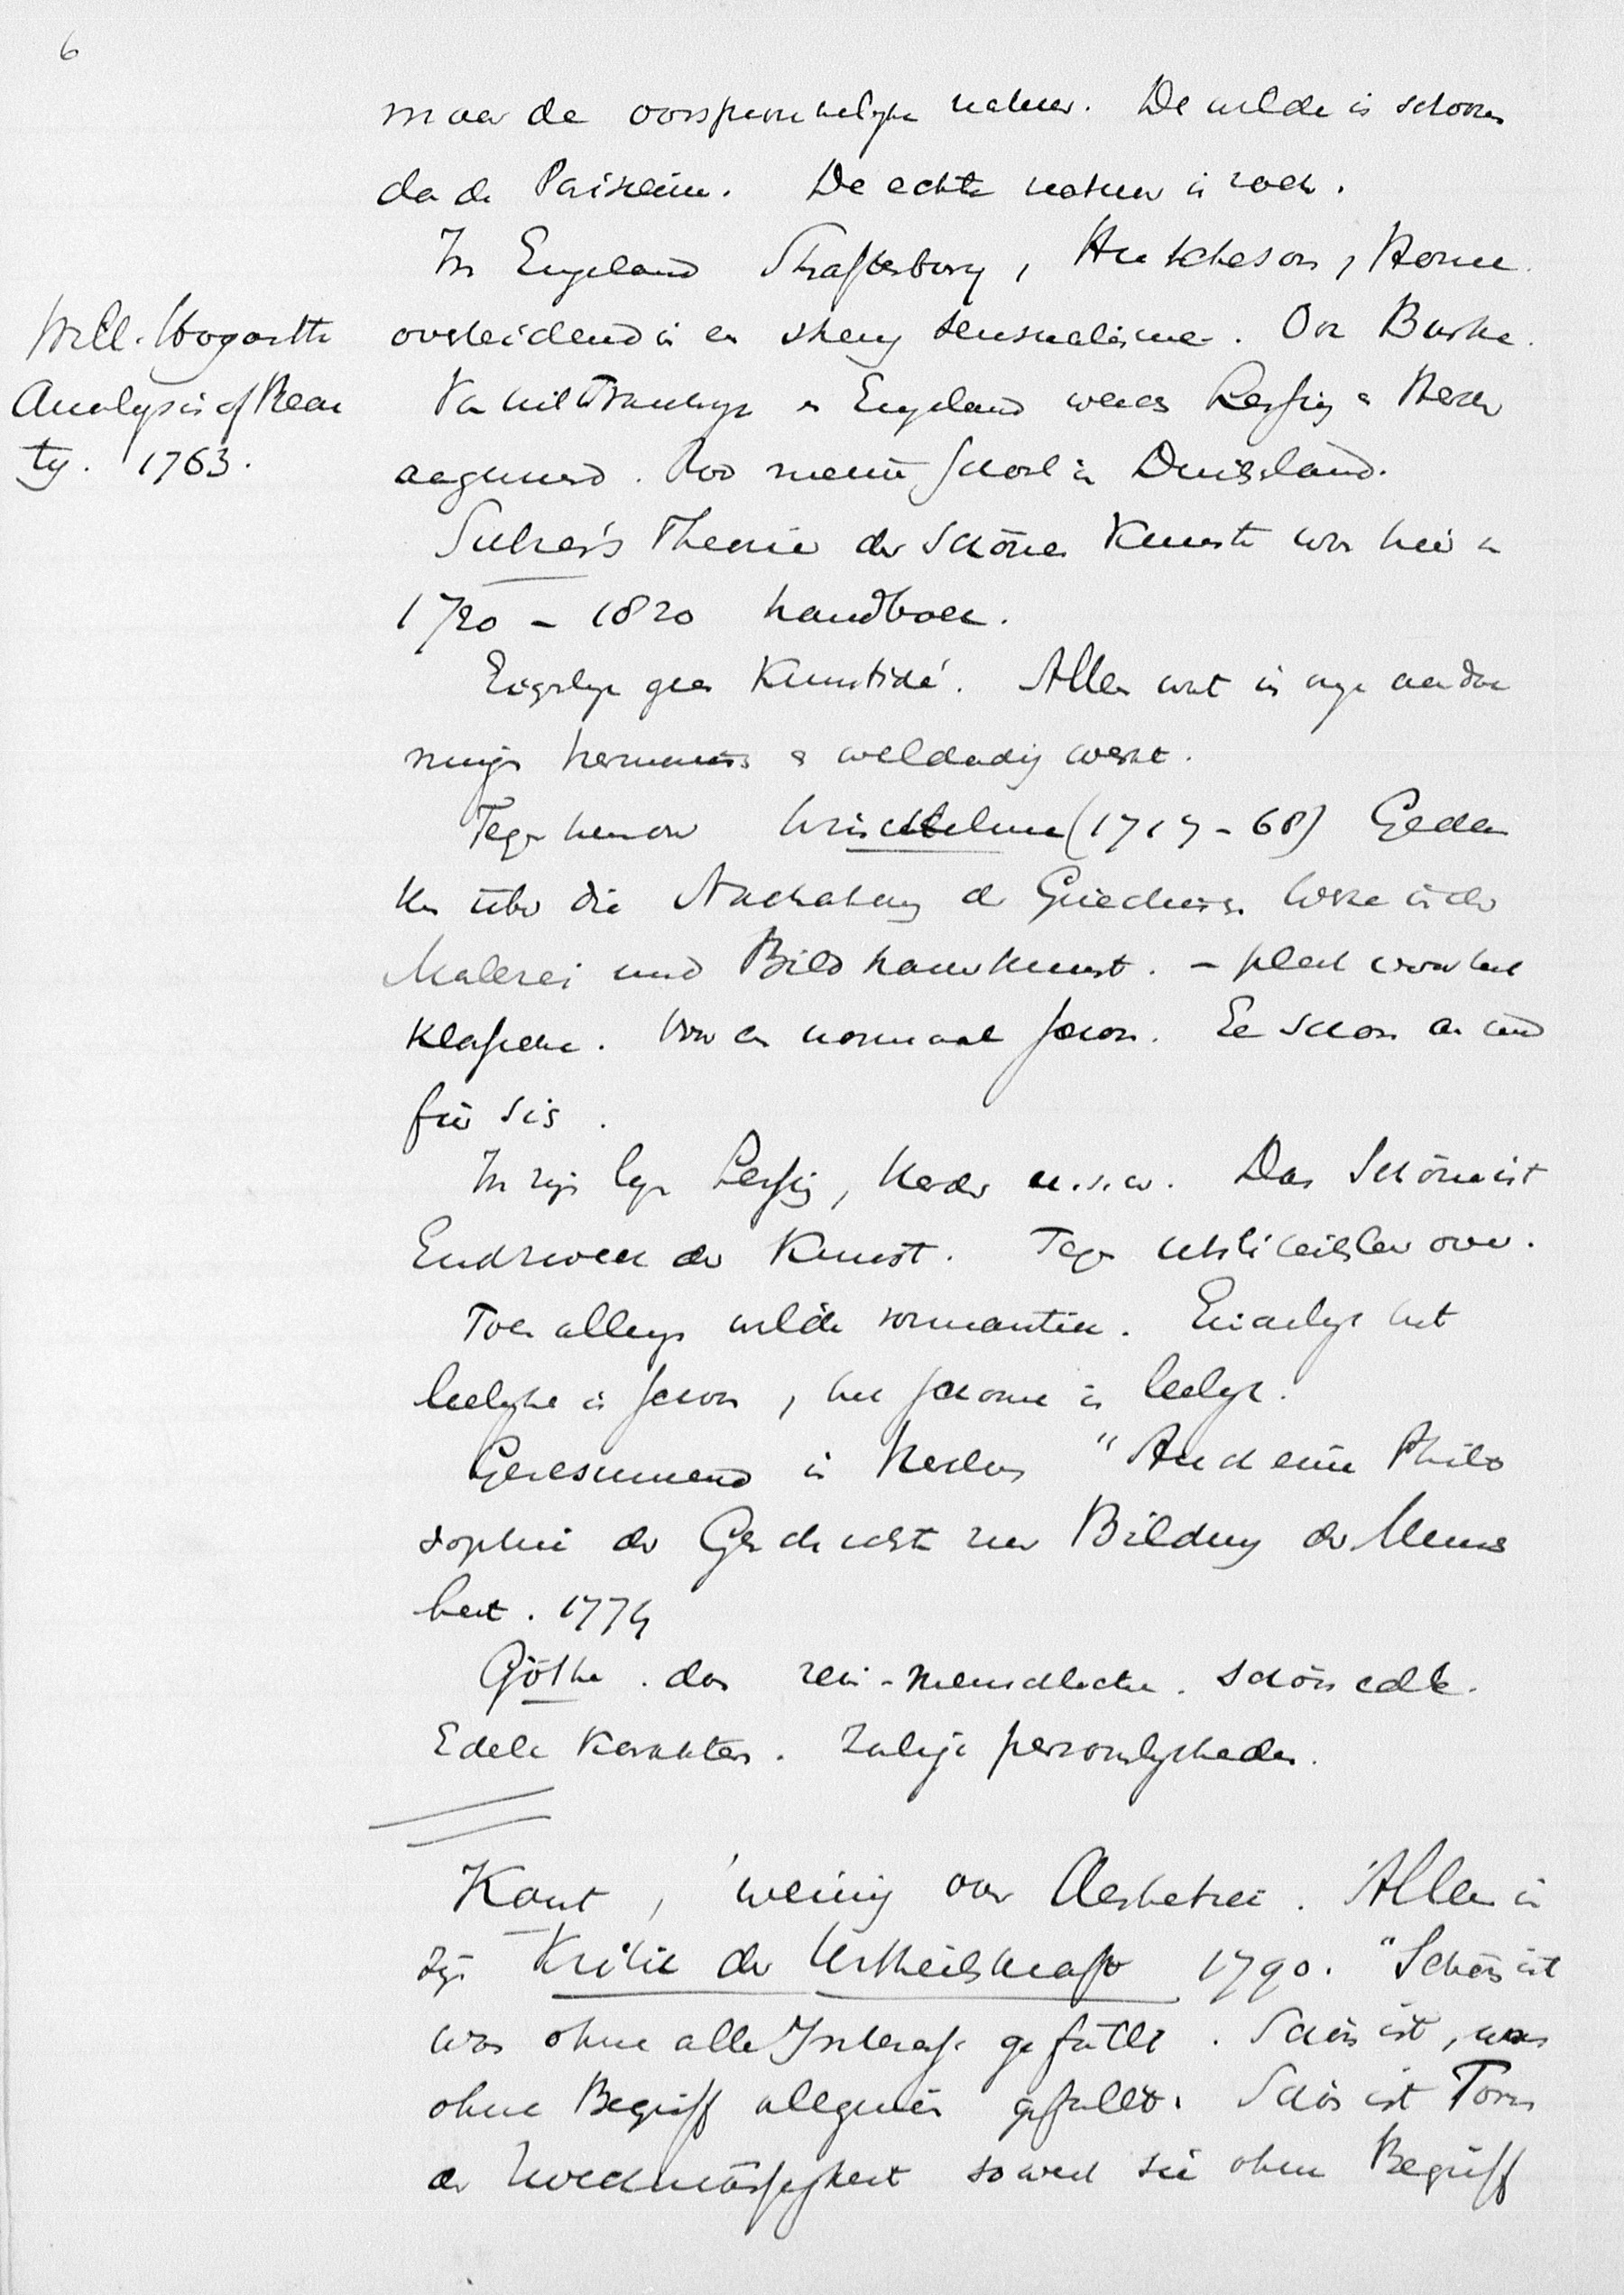 6
maar de oorspronkelijke natuur. De wilde is schooner
dan de Parisienne. De echte natuur is
In Engeland Shaftesbury, Hutcheson, Home.
Will. Hogarth
Analysis of Beau
ty. 1763.
overleidend in en streng sensualisme. Ook Burke.
Van uit Frankrijk en Engeland werden Lessing en Herder
aangevuurd. Door nieuwe school in Duitsland.
Sulzer's Theorie der Schönen Künste was hier in
1780 – 1820 handboek.
Eigenlijk geen Kunstidé. Alles wat in onze aandoe
ningen harmonisch en weldadig werkt.
Tegen hem ook Winckelmann (1717-68) Gedan
ken über die Nachahmung der Griechischen Werke in der
Malerei und Bildhauerkunst. – pleit voor het
Klassieke. Voor een normaal schoon. Een Schoon an und
für sich.
In zijn lijn Lessing, Herder u.s.w. Das Schöne ist
Endzweck der Kunst. Tegen over.
Toen allengs wilde romantiek. Eindelijk het
leelijke is schoon, het schoone is leelijk.
Geresumeerd in Herders "Auch eine Philo
sophie der Geschichte zur Bildung der Mensch
heit. 1774
Göthe. das rein-menschliche. schön edle.
Edele Karakters. Zulige persoonlijkheden.
Kant, weinig over Aesthetiek. Alleen in
zijn Kritik der Urtheilskraft 1790. "Schön ist
was ohne alle Interesse gefällt. Schön ist, was
ohne Begriff allgemein gefällt. Schön ist Form
der Zweckmässigkeit soweit sie ohne Begriff